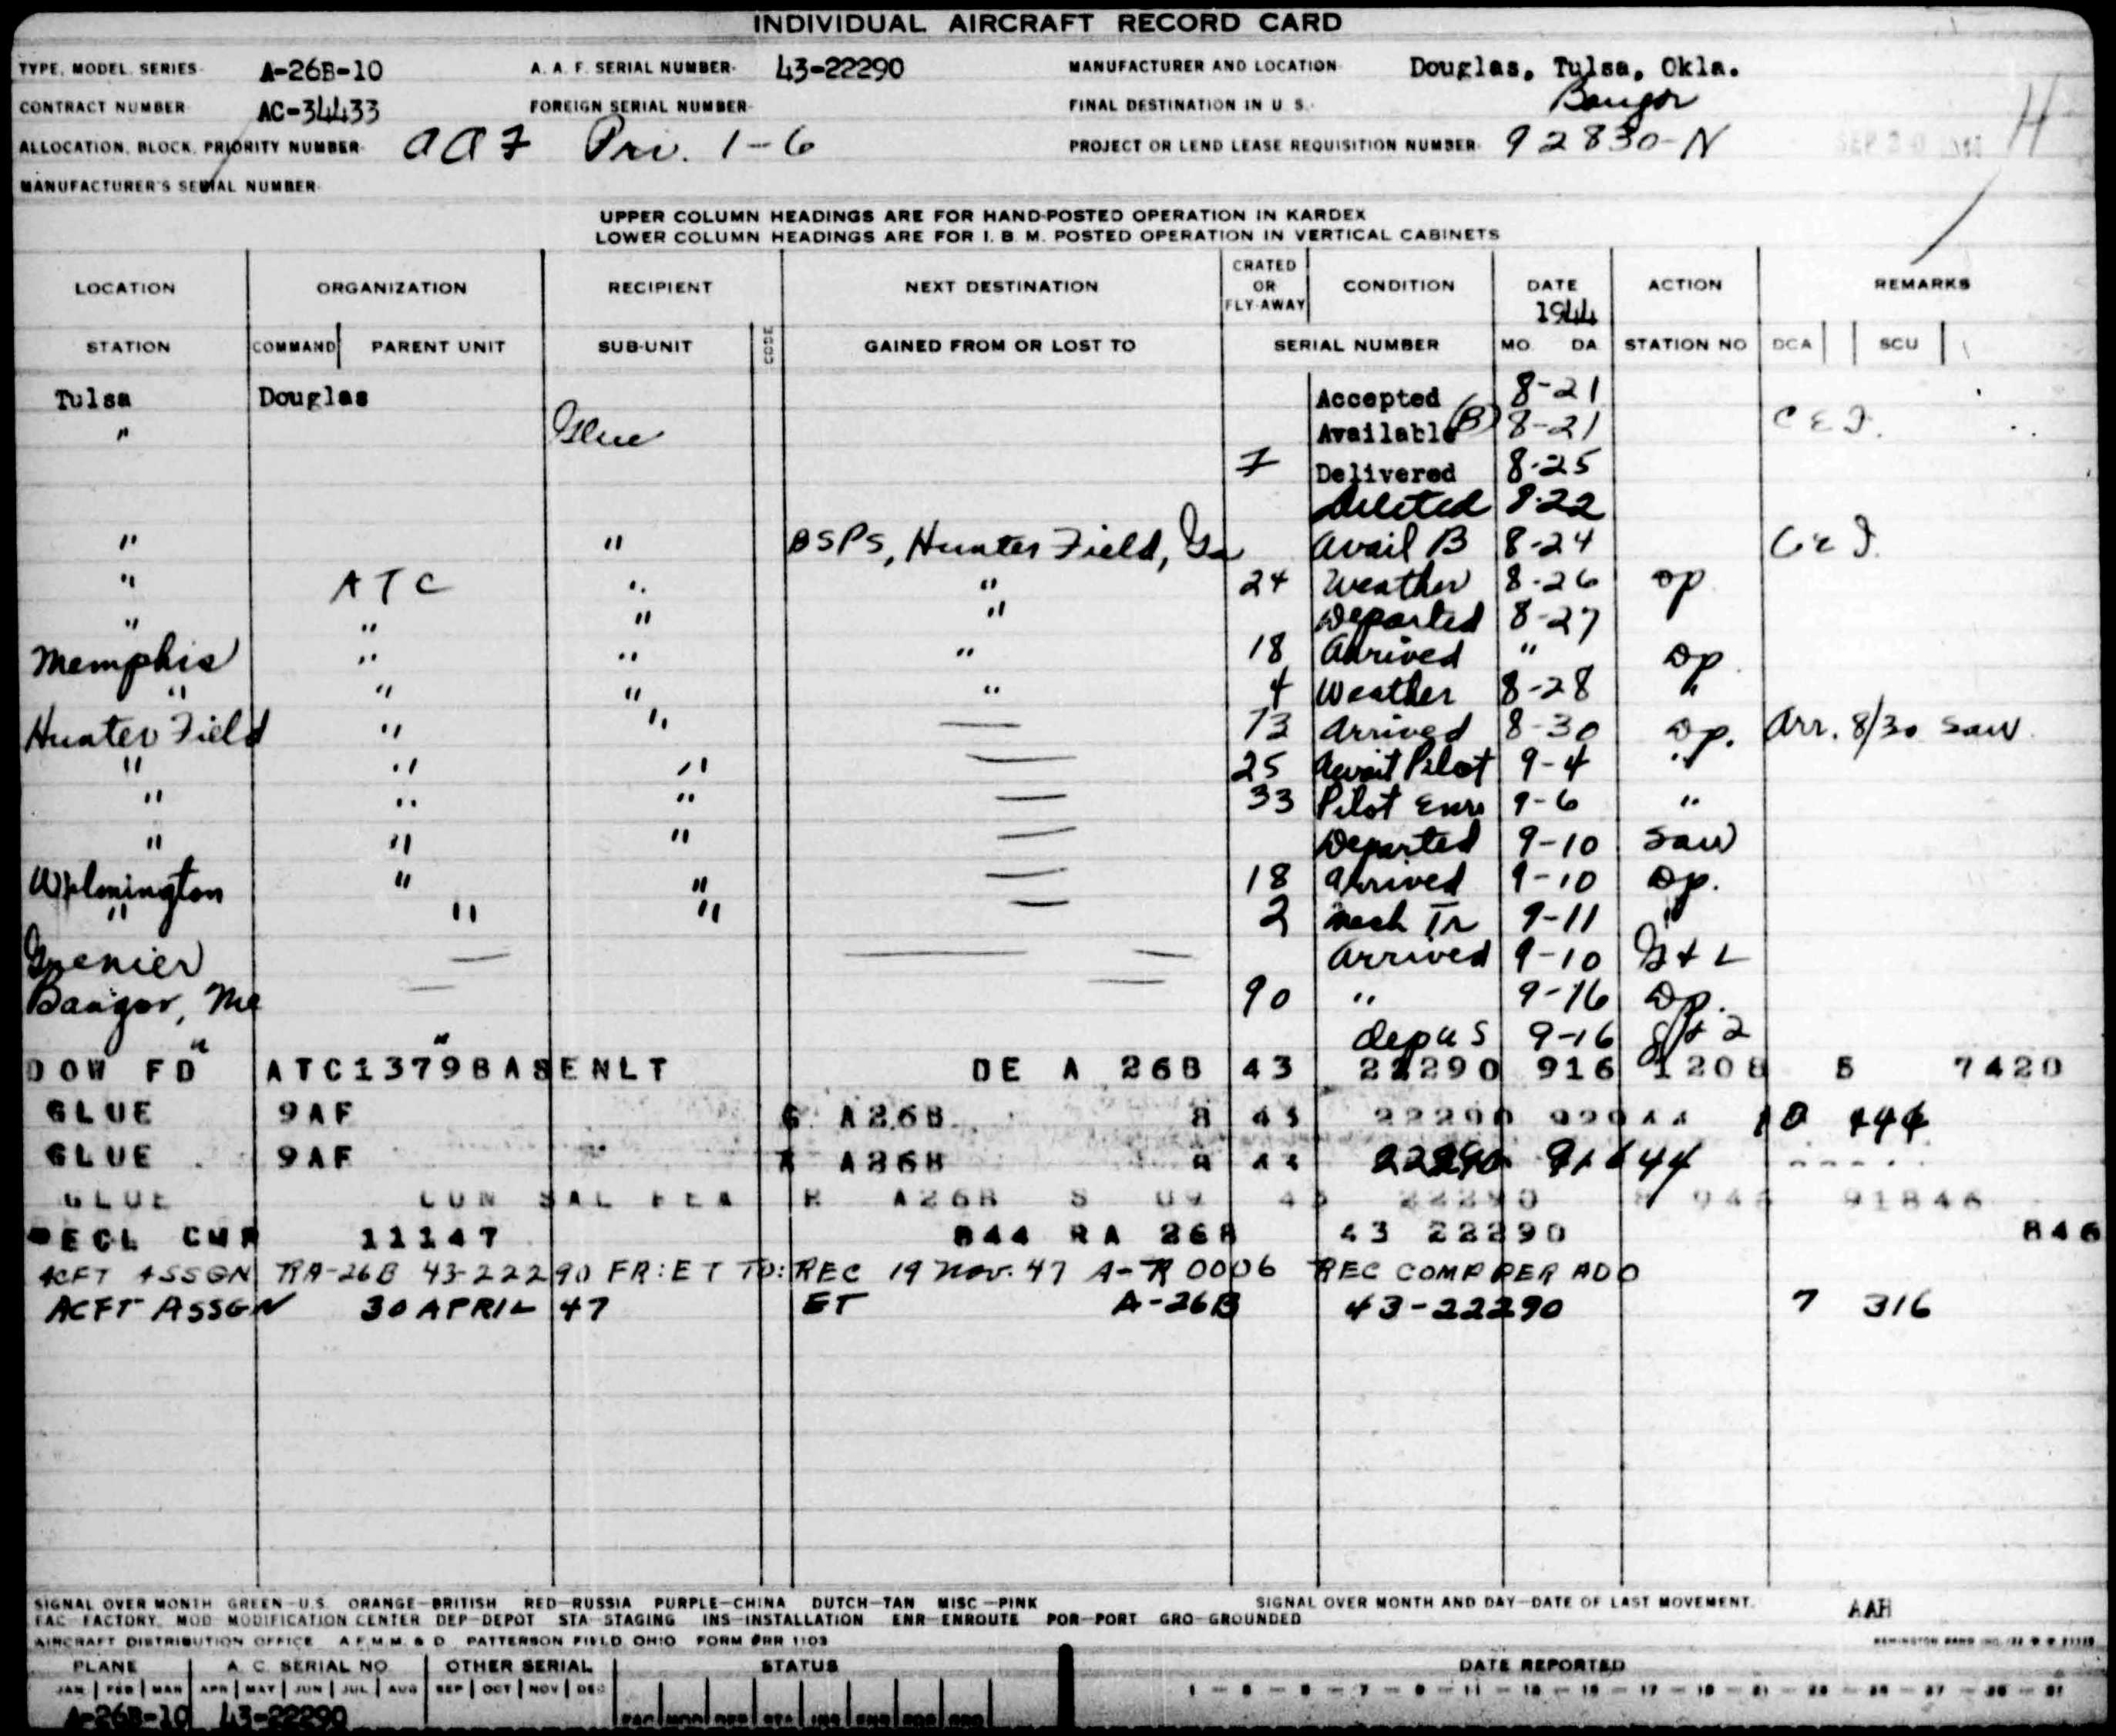 INDIVIDUAL AIRCRAFT RECORD CARD
TYPE, MODEL, SERIES A-26B-10 A. A. F. SERIAL NUMBER 43-22290 MANUFACTURER AND LOCATION Douglas, Tulsa, Okla.
CONTRACT NUMBER AC-34433 FOREIGN SERIAL NUMBER FINAL DESTINATION IN U. S. Bangor
ALLOCATION, BLOCK, PRIORITY NUMBER AAF Pri. 1-6 PROJECT OR LEND LEASE REQUISITION NUMBER 92830-N H
MANUFACTURER'S SERIAL NUMBER
UPPER COLUMN HEADINGS ARE FOR HAND-POSTED OPERATION IN KARDEX
LOWER COLUMN HEADINGS ARE FOR I. B. M. POSTED OPERATION IN VERTICAL CABINETS
LOCATION ORGANIZATION RECIPIENT NEXT DESTINATION CRATED OR FLY-AWAY CONDITION DATE 1944 ACTION REMARKS
STATION COMMAND PARENT UNIT SUB-UNIT CODE GAINED FROM OR LOST TO SERIAL NUMBER MO. DA. STATION NO DCA SCU
Tulsa Douglas Accepted 8-21
" Glue Available (B) 8-21 C E F.
F Delivered 8-25
Deleted 8-22
" " BSPS, Hunter Field, Ga Avail B 8-24
" ATC " " 24 Weather 8-26 Op
" " " " Departed 8-27
Memphis " " " 18 Arrived " Op.
" " " " 4 Weather 8-28 "
Hunter Field " " — 73 Arrived 8-30 Op. Arr. 8/30 Saw
" " " — 25 Await Pilot 9-4 "
" " " — 33 Pilot Enr 9-6 "
" " " — Departed 9-10 Saw
Wilmington " " — 18 Arrived 9-10 Op.
" " " — 2 Mech Tr 9-11 "
Grenier — — — Arrived 9-10
Bangor, Me — — 90 " 9-16 Op.
" " dep US 9-16
DOW FD ATC1379BASENLT DE A 26B 43 22290 916 1208 5 7420
GLUE 9AF G A26B 43 22290
GLUE 9AF A26B 22290 91644
GLUE CON SAL FEA R A26B S 09 43 22290 91846
RECL CMP 11147 844 RA 26B 43 22290 846
ACFT ASSGN RA-26B 43-22290 FR: ET TO: REC 19 Nov. 47 A-R 0006 REC COMP PER ADO
ACFT ASSGN 30 APRIL 47 ET A-26B 43-22290 7 316
SIGNAL OVER MONTH GREEN—U.S. ORANGE—BRITISH RED—RUSSIA PURPLE—CHINA DUTCH—TAN MISC—PINK SIGNAL OVER MONTH AND DAY—DATE OF LAST MOVEMENT.
FAC FACTORY, MOD MODIFICATION CENTER DEP—DEPOT STA STAGING INS—INSTALLATION ENR—ENROUTE POR—PORT GRO—GROUNDED AAH
AIRCRAFT DISTRIBUTION OFFICE A.F.M.M. & D. PATTERSON FIELD, OHIO FORM #RR 1103
PLANE A. C. SERIAL NO OTHER SERIAL STATUS DATE REPORTED
JAN FEB MAR APR MAY JUN JUL AUG SEP OCT NOV DEC
A-26B-10 43-22290